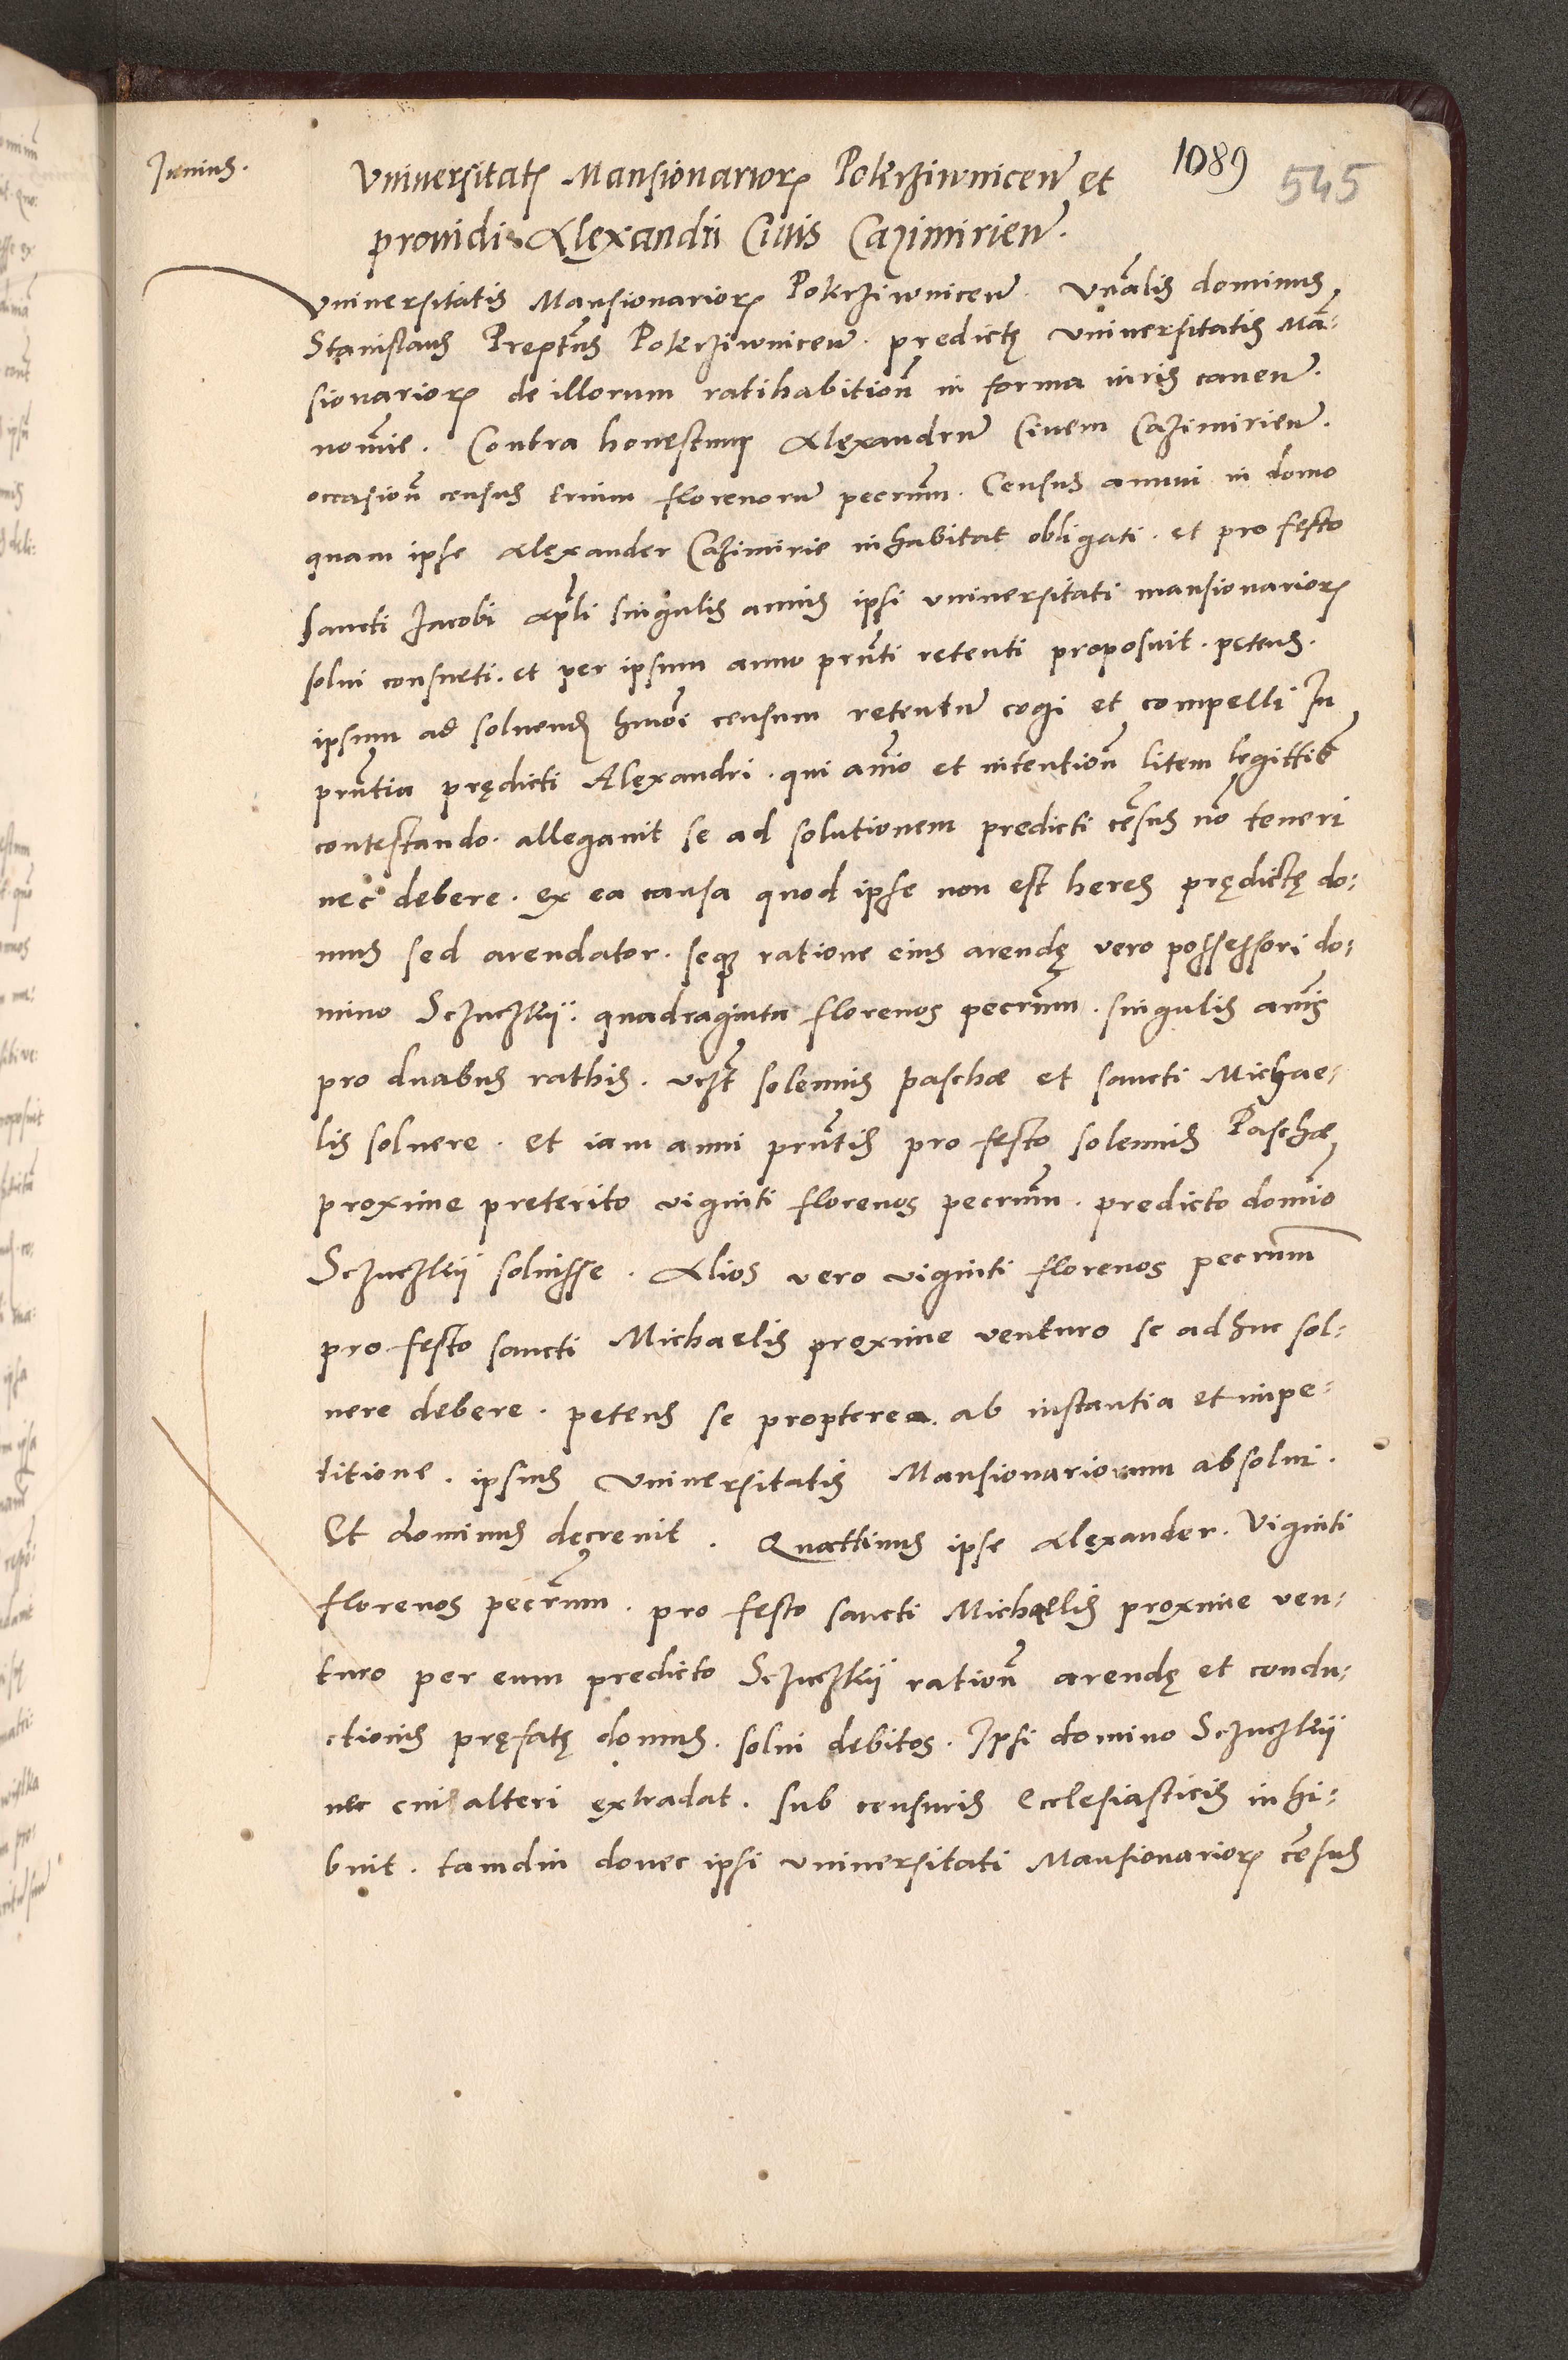 Junius.
1089
545
Vniuersitatꝭ Mansionarioꝝ Pokrziwnicen̄ et
prouidi Alexandri Ciuis Cazimirien̄.
Vniuersitatis Mansionarioꝝ Pokrziwnicen̄. Vn̄alis dominus
Stanislaus Prepts̄us Pokrziwnicen̄. predictę vniuersitatis Man̄:
sionarioꝝ de illorum ratihabition̄ in forma iuris cauen̄.
nomīe. Contra honestum Alexandrum̄ Ciuem Cazimirien̄.
occasion̄ census trium florenorum̄ pecun̄m. Census annui in domo
quam ipse Alexander Cazimirie inhabitat obligati. et pro festo
Sancti Jacobi Apl̄i singulis annis ipsi vniuersitati mansionarioꝝ
solui consueti. et per ipsum anno prn̄ti retenti proposuit. petens.
ipsum ad soluend hmōi censum retentum̄ cogi et compelli In
prn̄tia prędicti Alexandri. qui anīo et intention̄ litem legittie
contestando. allegauit se ad solutionem predicti cēsus nō teneri
nec debere. ex ea causa quod ipse non est heres prędictę do:
mus sed arendator. seqꝫ ratione eius arendę vero possessori do:
mino Sczuczkij. quadraginta florenos pecun̄m. singulis annīs
pro duabus rathis. vczt̄ solennis paschæ et sancti Michae:
lis soluere. et iam anni prn̄tis pro festo solennis Paschæ
proxime preterito viginti florenos pecun̄m. predicto domīo
Sczuczkij soluisse. Alios vero viginti florenos pecun̄m
pro festo sancti Michaelis proxime venturo se adhuc sol:
uere debere. petens se propterea. ab instantia et impe:
titione. ipsius Vniuersitatis Mansionariorum absolui.
Et dominus decreuit. Quattinus ipse Alexander. Viginti
florenos pecun̄m. pro festo sancti Michaelis proxime ven:
turo per eum predicto Sczuczkij ration̄ arendę et condu:
ctionis pręfatę domus. solui debitos. Ipsi domino Sczuczkij
nec cuiꝗ alteri extradat. sub censuris Ecclesiasticis inhi:
buit. tamdiu donec ipsi vniuersitati Mansionarioꝝ cēsus